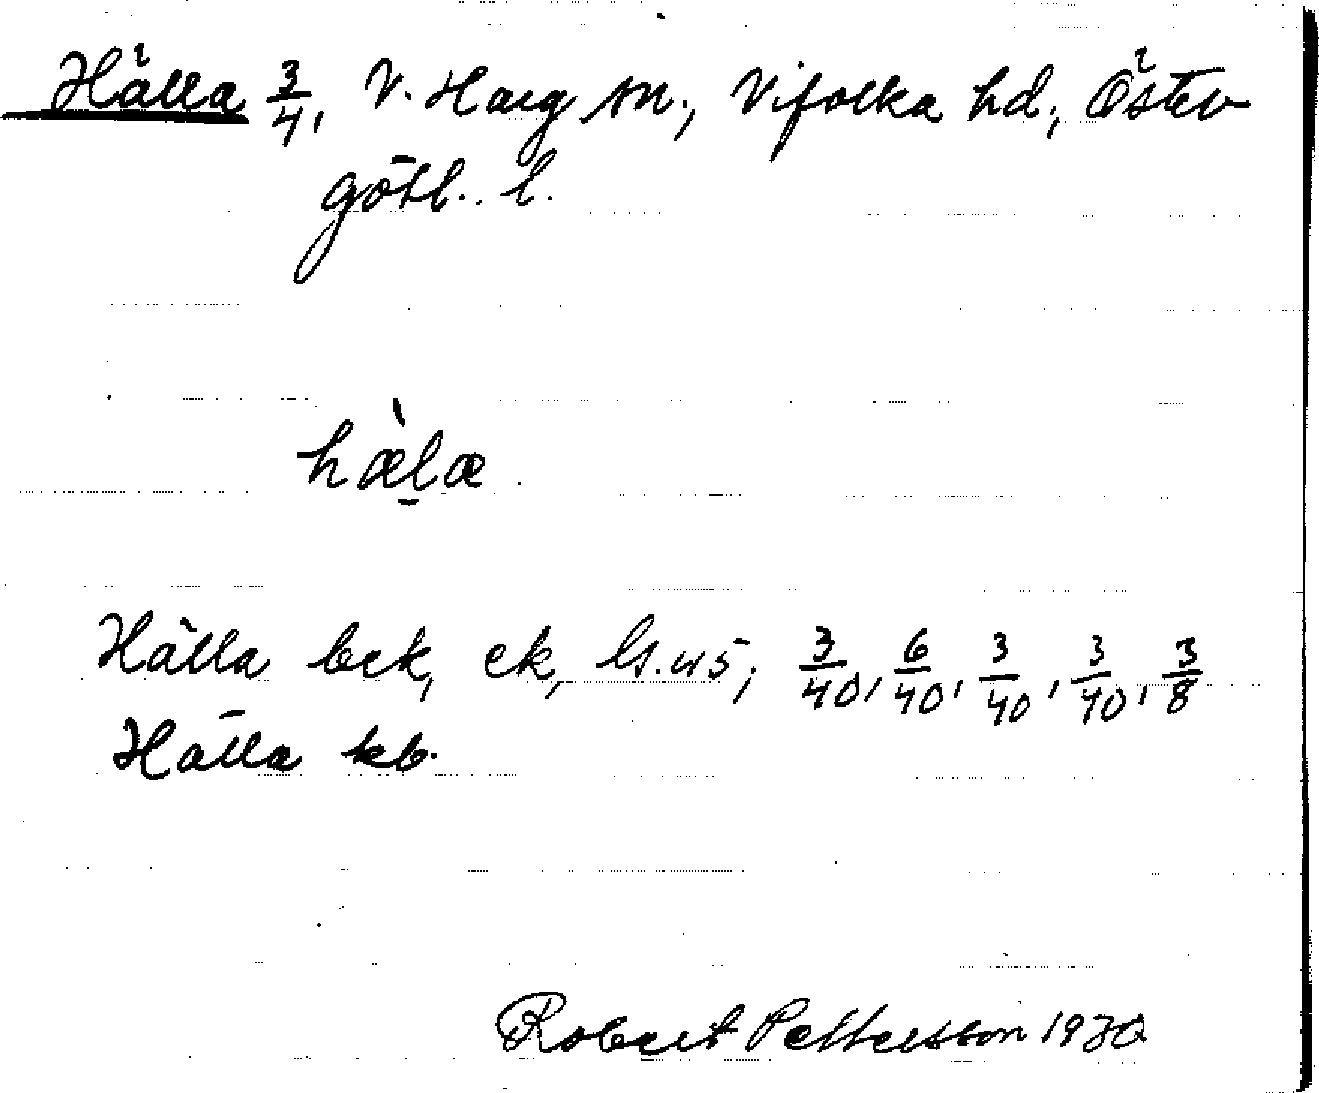 Hälla 3/4, V. Harg sn., Vifolka hd., Öster-
götl. l.
hæ̀l̠æ
Hälla bek, ek, ls. 45; 3/40, 6/40, 3/40, 3/40, 3/8
Hälla kb.
Robert Pettersson 1930